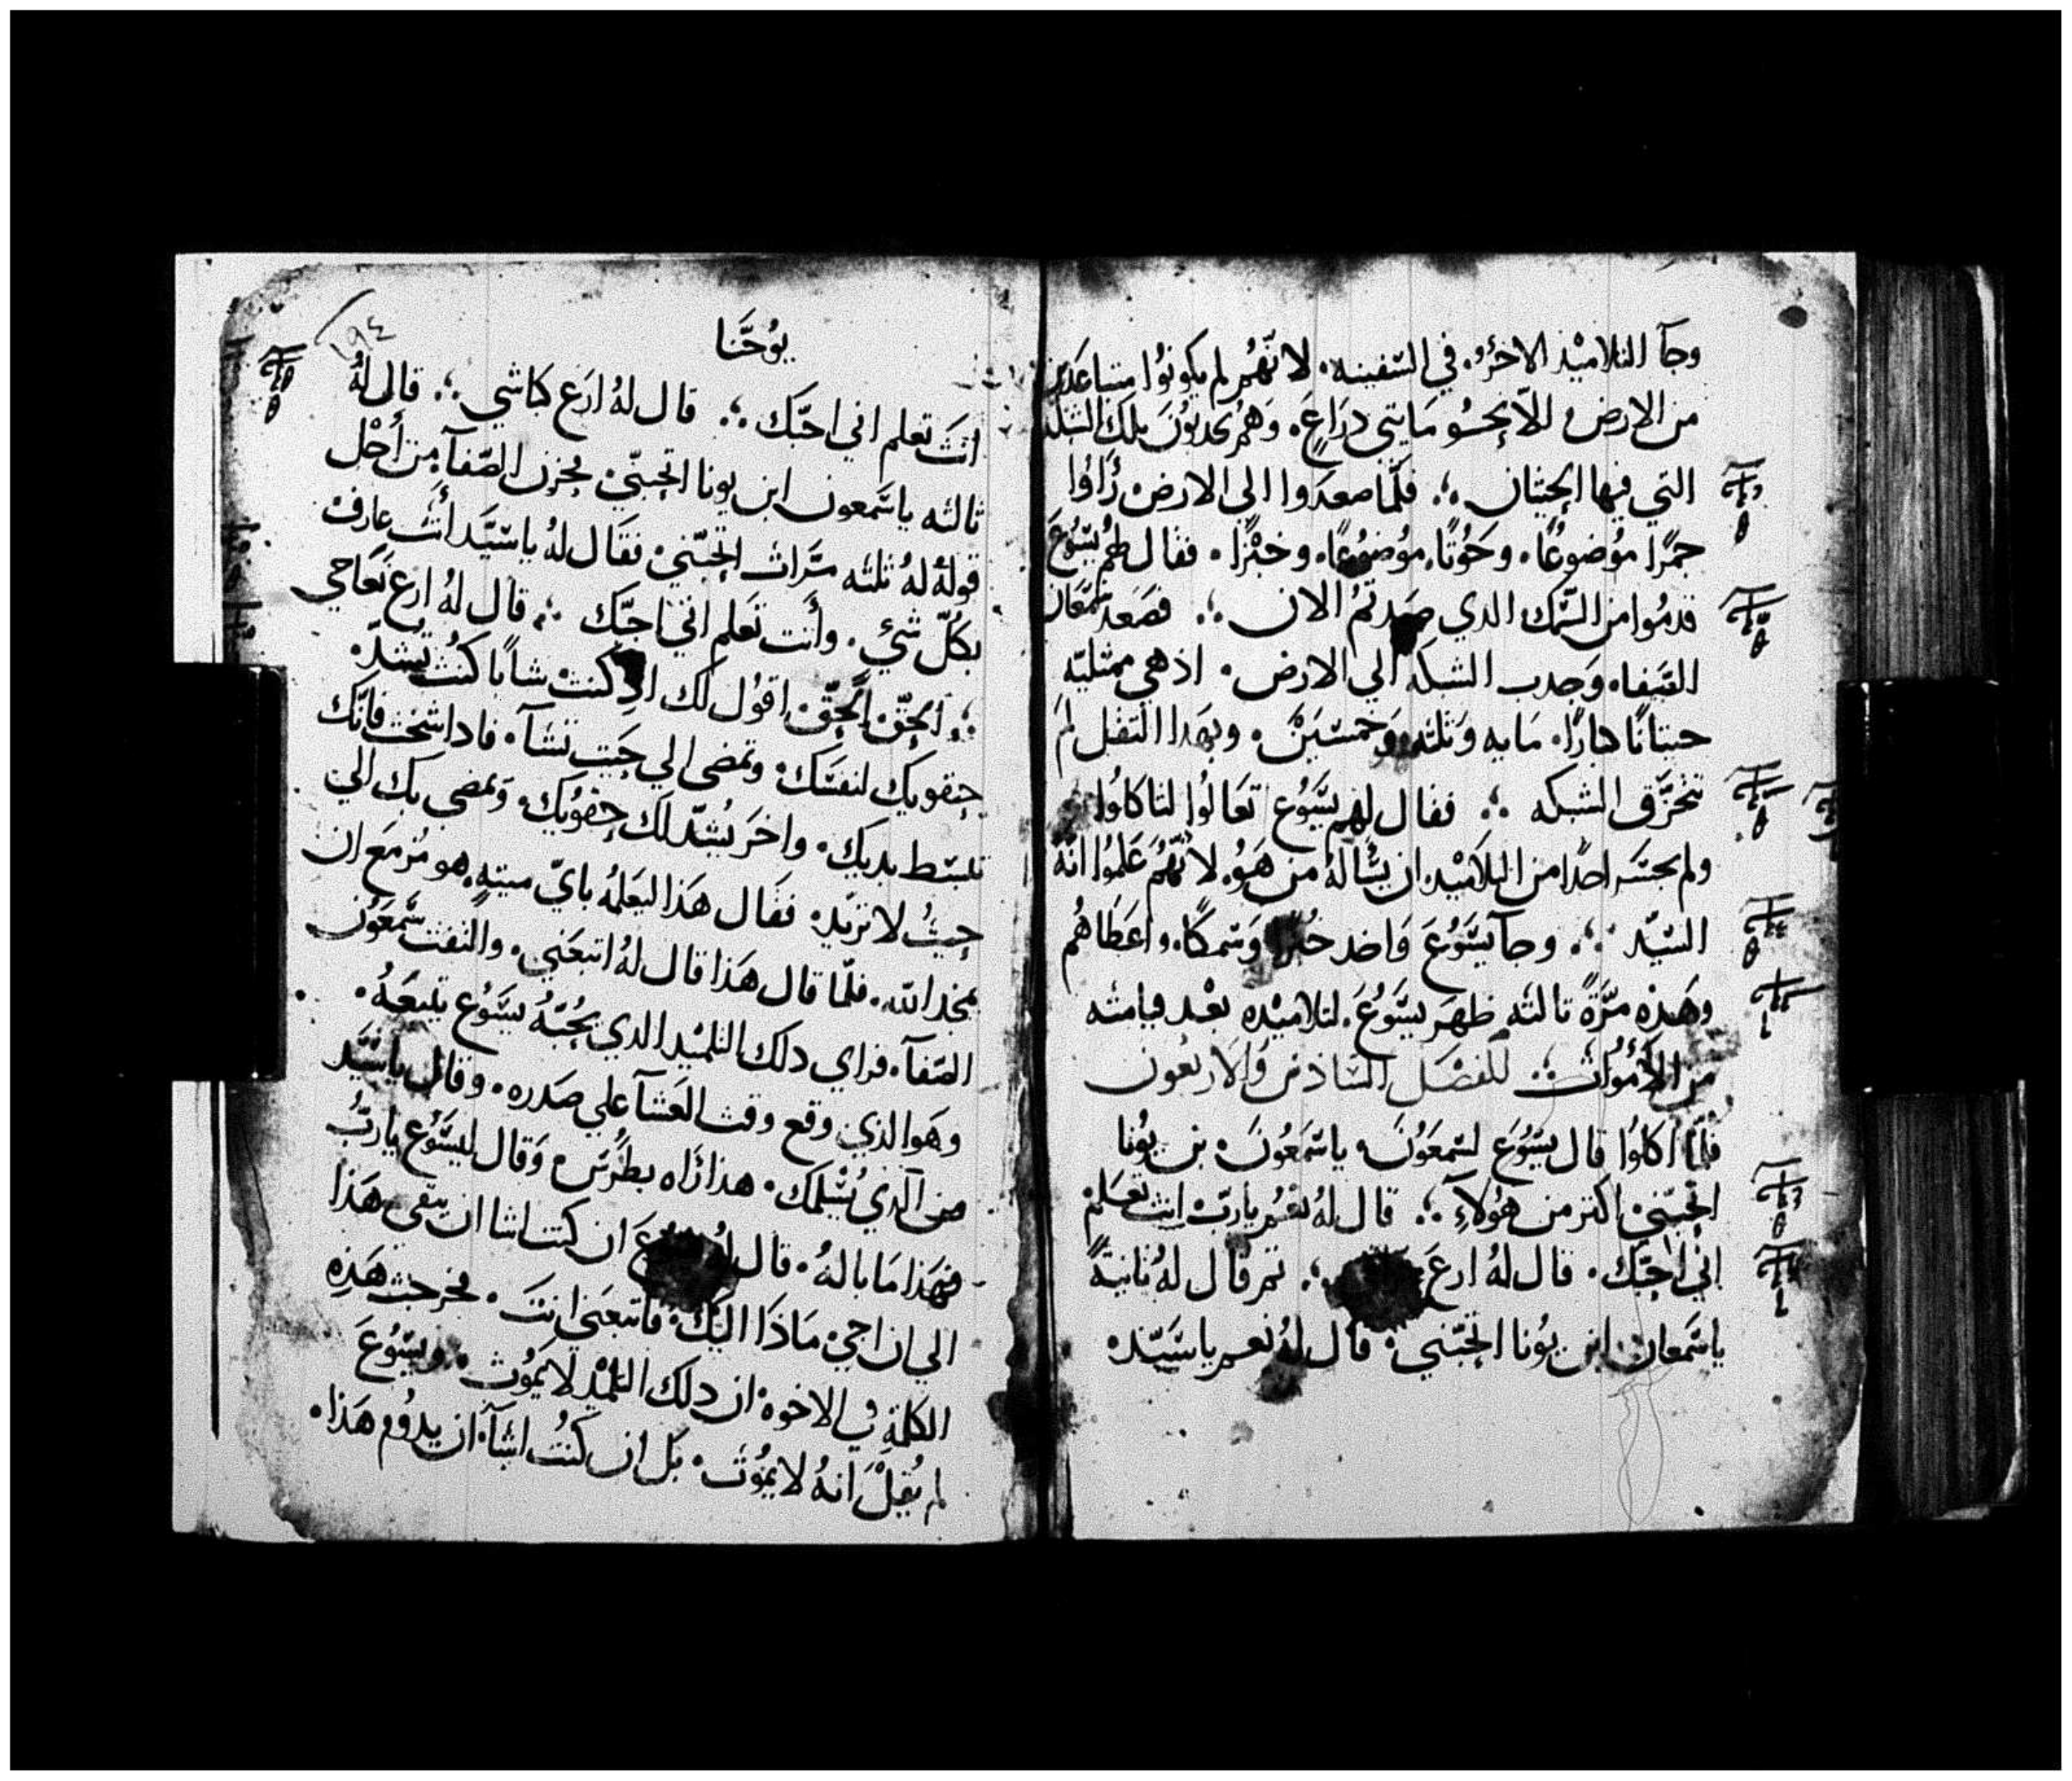 وجآ التلاميْذ الاخرُو. في السّفينه. لانّهُم لم يكونوُا متباعَدين
من الارض الّا بحسُو مَايتي دِرَاعٍ. وَهُم يجدبوُن تلك الشبكه
التي فيها الحِيتان ؞ فلمّا صعدَوا الي الارض رَاوُا
جمرًا موُضوعًا. وحَوُتًا. موُضوُعًا. وخبْزا. فقال لهُم يسَّوُعَ
قدموُا من السَّمك الدي صِدتمُ الان ؞ فصَعد سَمعَان
الصَفا. وجدب الشبكه الي الارض. اذ هي ممتليّه
حيتانًا كبارًا. مَايه وثلثه وخمسَين. وبهَدا الثقل لم
تتخرَّق الشبكه ؞ فقال لهم يسَّوُع تعَالوُا لتاكلوُا
ولم يجسَر احدًا من التلاميْد ان يسَالهُ من هَوُ. لانّهُم عَلموُا انّهُ
السّيّد ؞ وجآ يسَّوُعَ وَاخد خُبزًا وَسَمكًا. واعَطَاهُم
وهَذه مرَّةً ثالثه ظهرَ يسَّوُعَ. لتلاميْده بعْد قيامته
من الأمْوُات ؞ للفصَل السَّادس وَالاربعُون
فلمّا اكلوُا قال يسَّوُعَ لسَمعَوُنَ. ياسَمَعُونَ بن يوُنا
اتحِبّني اكتر من هَوُلآءِ ؞ قال لهُ نعَمُ ياربّ انت تعَلم
انّي احِبّك. قال لهُ ارعَ ؞ تم قال لهُ ثانيةً
ياسَّمَعان ابن يوُنا اتحِبّني. قال لهُ نعم ياسَيّده
١٩٤
يوُحَنّا
انتَ تعلم اني احبّك ؞ قال لهُ ارَع كباشي ؞ قال لهُ
ثالثه ياسَّمعون ابن يونا اتحبّني فحزن الصّفآ من أجْل
قولهُ لهُ ثلثه مرَّات اتحبّني فقَال لهُ ياسَيَّد أنت عارف
بكلّ شيٍ. وأنت تعَلم انّي احبّك ؞ قال لهُ ارع نعَاجي
؞ الحقّ الحقّ اقوُل لك اذ كنت شابًا كنُت تشدّ.
حِقويك لنفسَك. وتمضى الي حَيت تشآ. فاداشخت فانّك
تبسَط يديك. واخَر يشدّ لك حِقويُك. وتمضي بك الي
حيثُ لا تريّد. ففَال هَذا ليعَلمُ بايّ ميته. هو مُزمَع ان
يمجد الله. فلمّا قال هَذا قال لهُ اتبعَني. والتفت سَّمعَوُن
الصَفآ. فراي دلك التلميْد الدي يحُبّهُ يسَّوُع تتبعَهُ.
وهَو الذي وقع وقت العَشآ علي صَدره. وقال ياسَيَّد
من الّدي يُسْلمك. هذا رَاه بطرُسَ. وَقال ليسَّوُع ياربُّ
فهَذا مَا بالهُ. قال لهُ يسَّوُعَ ان كنت اشا ان يبقى هَذا
الي ان اجي. مَاذَا اليْك. فاتبعَني انتَ. فخرجت هَذِه
الكلمَة في الاخوه. ان دلك التلميْد لا يموُت. ويسَّوُعَ
لم يقلْ انهُ لا يموُت. بَل ان كنتُ اشآ. ان يدوُم هَذا.